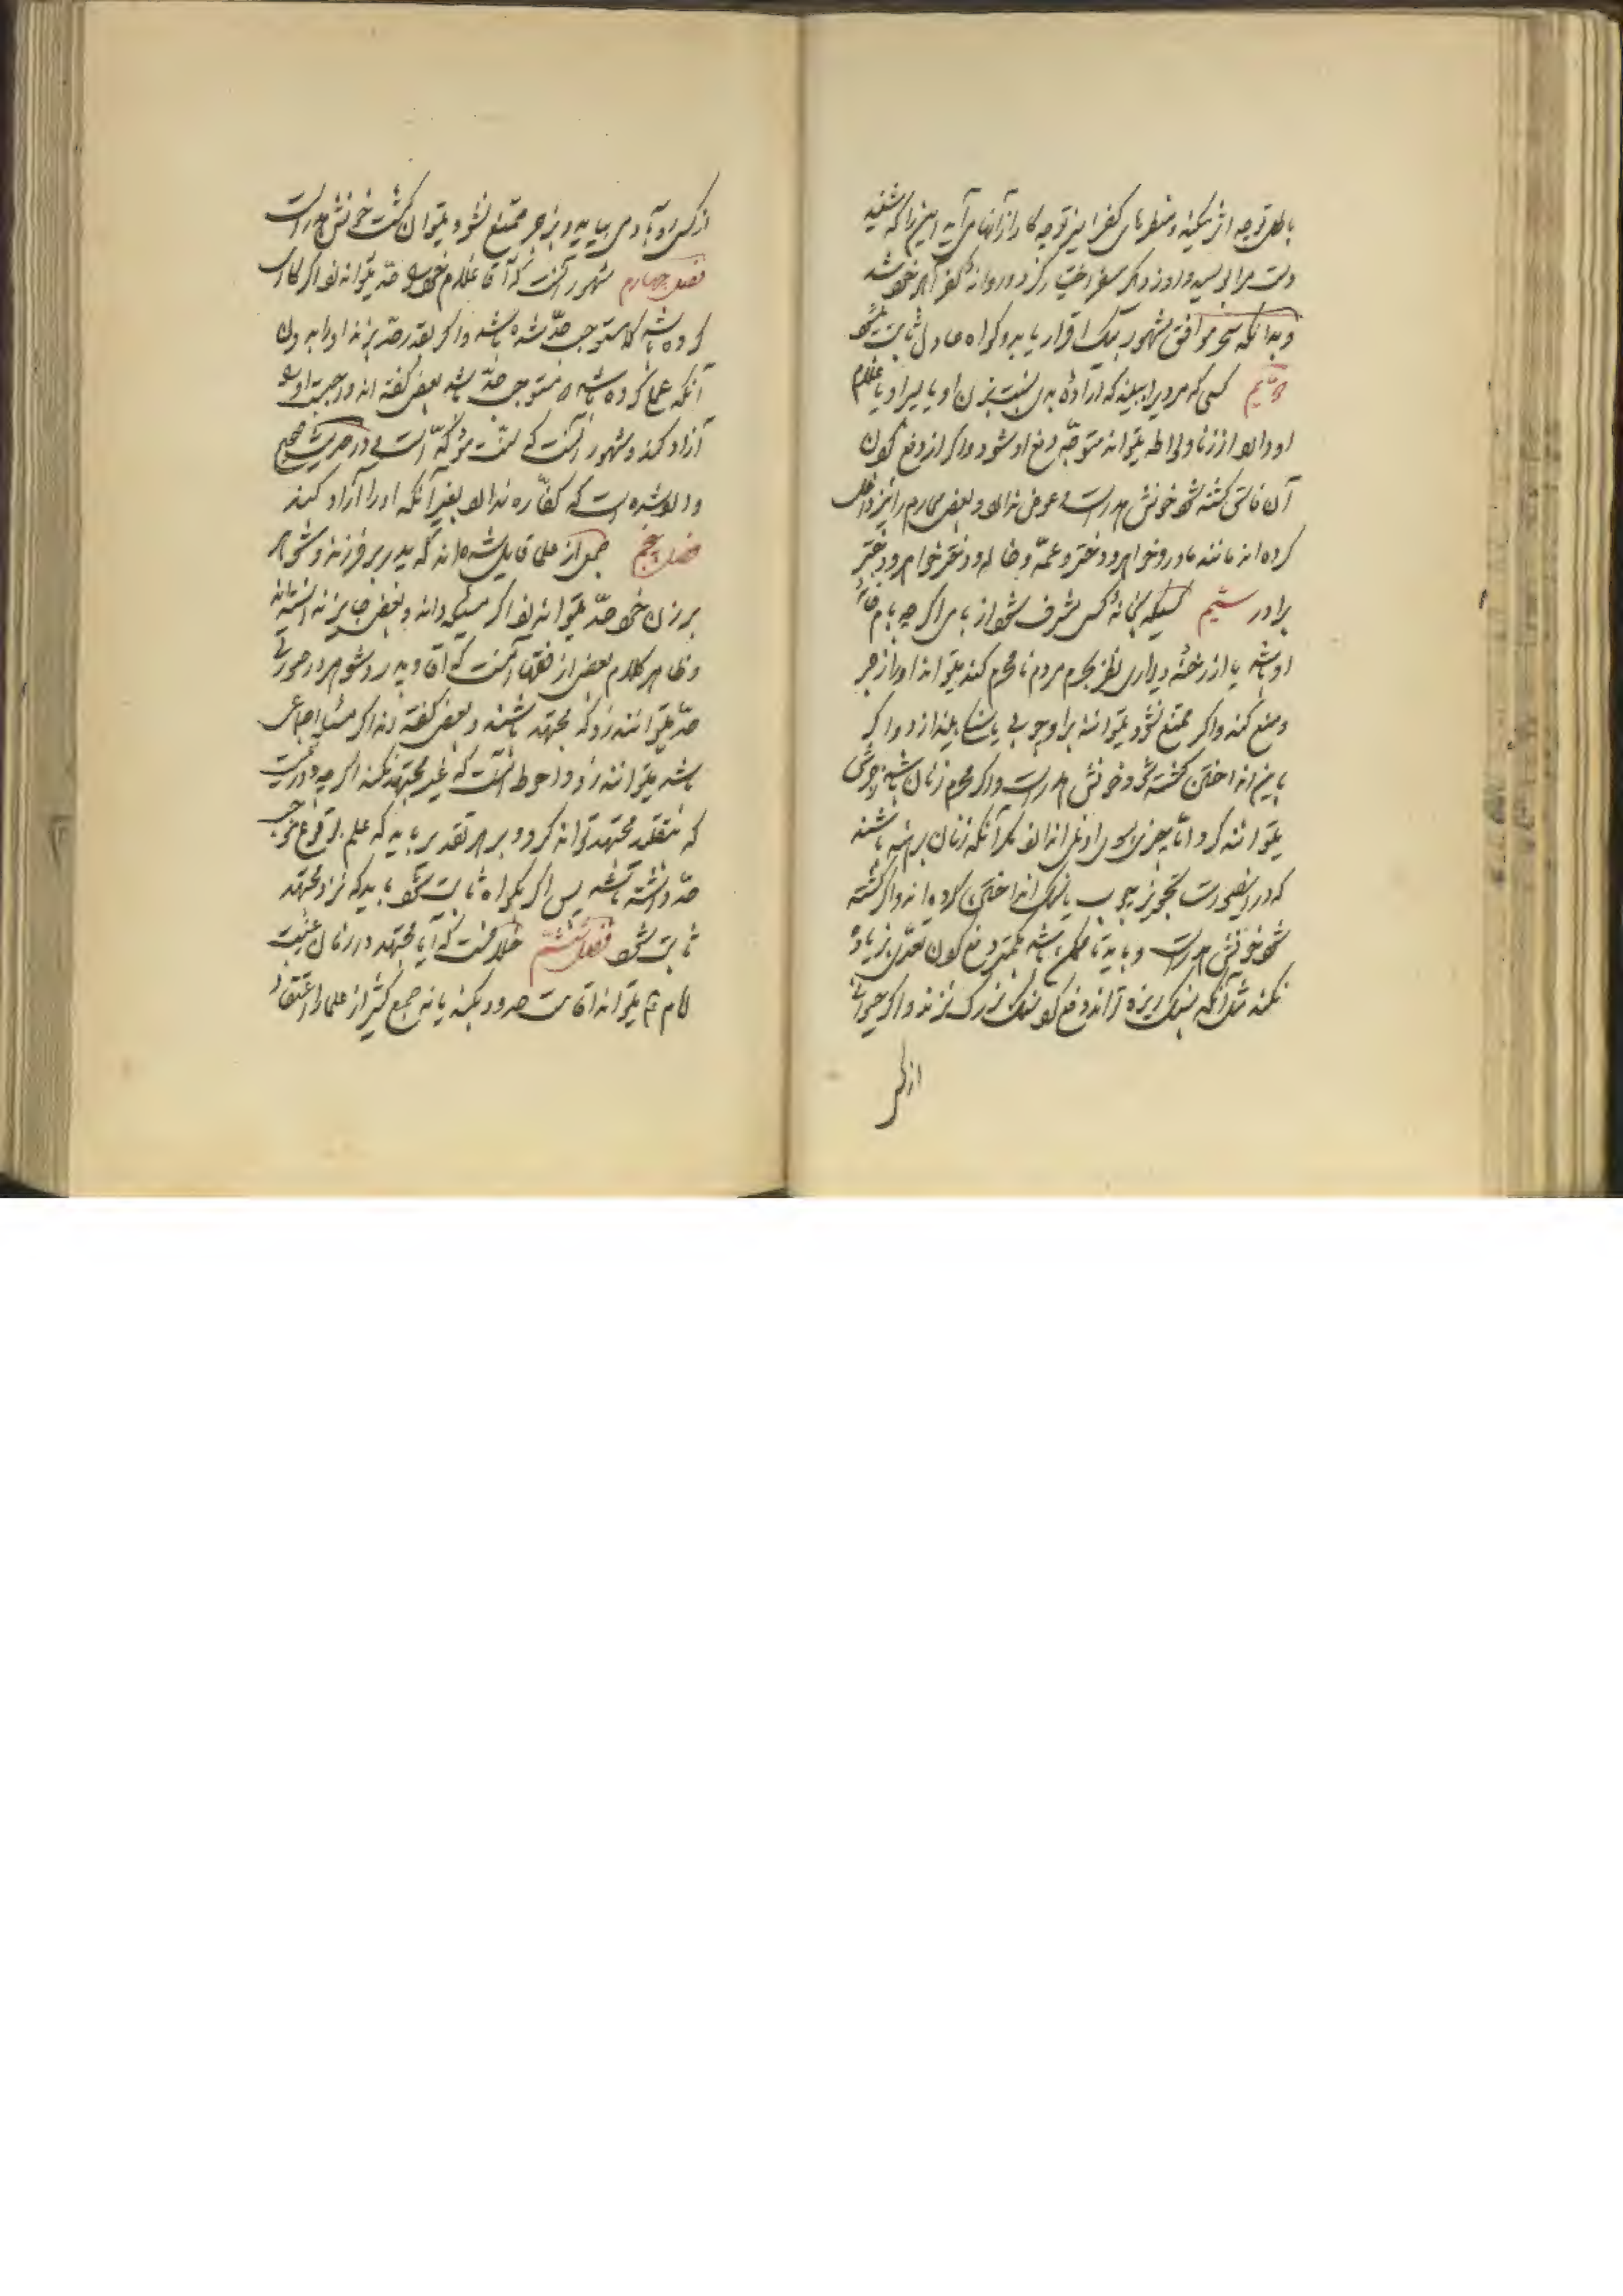 باطل توجه اثر میکند و منظرهای کفر این توجه کار از آنها می آید این را که شنید
دست مرا بوسید و
و بدانکه سحر موافق مشهور بیک اقرار یا بدو گواه عادل ثابت میشود
کسی که مردیرا ببیند که اراده بدی نسبت بزن او یا پسر او یا غلام
او دارد از زنا و لواطه میتواند متوجه دفع او شود و اگر از دفع کردن
آن فاسق کشته شود خونش هدر است و عوض ندارد و بعضی محارم را نیز داخل
کرده اند مانند مادر و خواهر و دختر و عمه و خاله و دختر خواهر و دختر
برادر سیم کسیکه بخانه کسی مشرف شود از بامی اگر چه بام خانه
او باشد یا از رخنه دیواری نظر بحرم مردم نامحرم کند میتواند او را زجر
و منع کند و اگر ممتنع نشود میتواند براو چوبی یا سنگی بیندازد و اگر
باین انداختن کشته شود خونش هدر است و اگر محرم زنان باشد زجرش
میتوانند کرد اما چیزی بسوی او نمی اندازند مگر آنکه زنان برهنه باشند
که در اینصورت تجویز چوب یا سنگ انداختن کرده اند و اگر کشته
شود خونش هدر است و باید تا ممکن باشد بکمتر دفع کردن تعدی بزیاده
نکند مثل آنکه بسنگ ریزه تواند دفع کرد سنگ بزرگ نزند و اگر حیوانی
از کسی
از کسی رو بآدمی بیاید و بزجر ممتنع نشود میتوان کشت خونش هدر است
فصل چهارم مشهور آنست که آقا غلام خود را حد میتواند زد اگر کاری
کرده باشد که مستوجب حد شده باشد و اگر بقدر حد بزند او را بدون
آنکه عملی کرده باشد که مستوجب حد باشد بعضی گفته اند واجبست او را
آزاد کند و مشهور آنست که سنت مؤکد است و در حدیث صحیح
وارد شده است که کفاره ندارد بغیر آنکه او را آزاد کند
فصل پنجم جمعی از علما قایل شده اند که پدر بر فرزند و شوهر
بر زن خود حد میتواند زد اگر مسئله داند و بعضی جایز ندانسته اند
و ظاهر کلام بعضی از فقها آنست که آقا و پدر و شوهر در صورتی
حد میتوانند زد که مجتهد باشند و بعضی گفته اند اگر مسئله اجماعی
باشد میتوانند زد و احوط آنست که غیر مجتهد نکند اگر چه دور نیست
که مقلد مجتهد تواند کرد و بر هر تقدیر باید که علم بوقوع موجب
حد داشته باشد پس اگر بگواه ثابت شود باید که نزد مجتهد
ثابت شود فصل ششم خلافست که آیا مجتهد در زمان غیبت
امام ع میتواند اقامت حدود بکند یا نه جمع کثیر از علما را اعتقاد